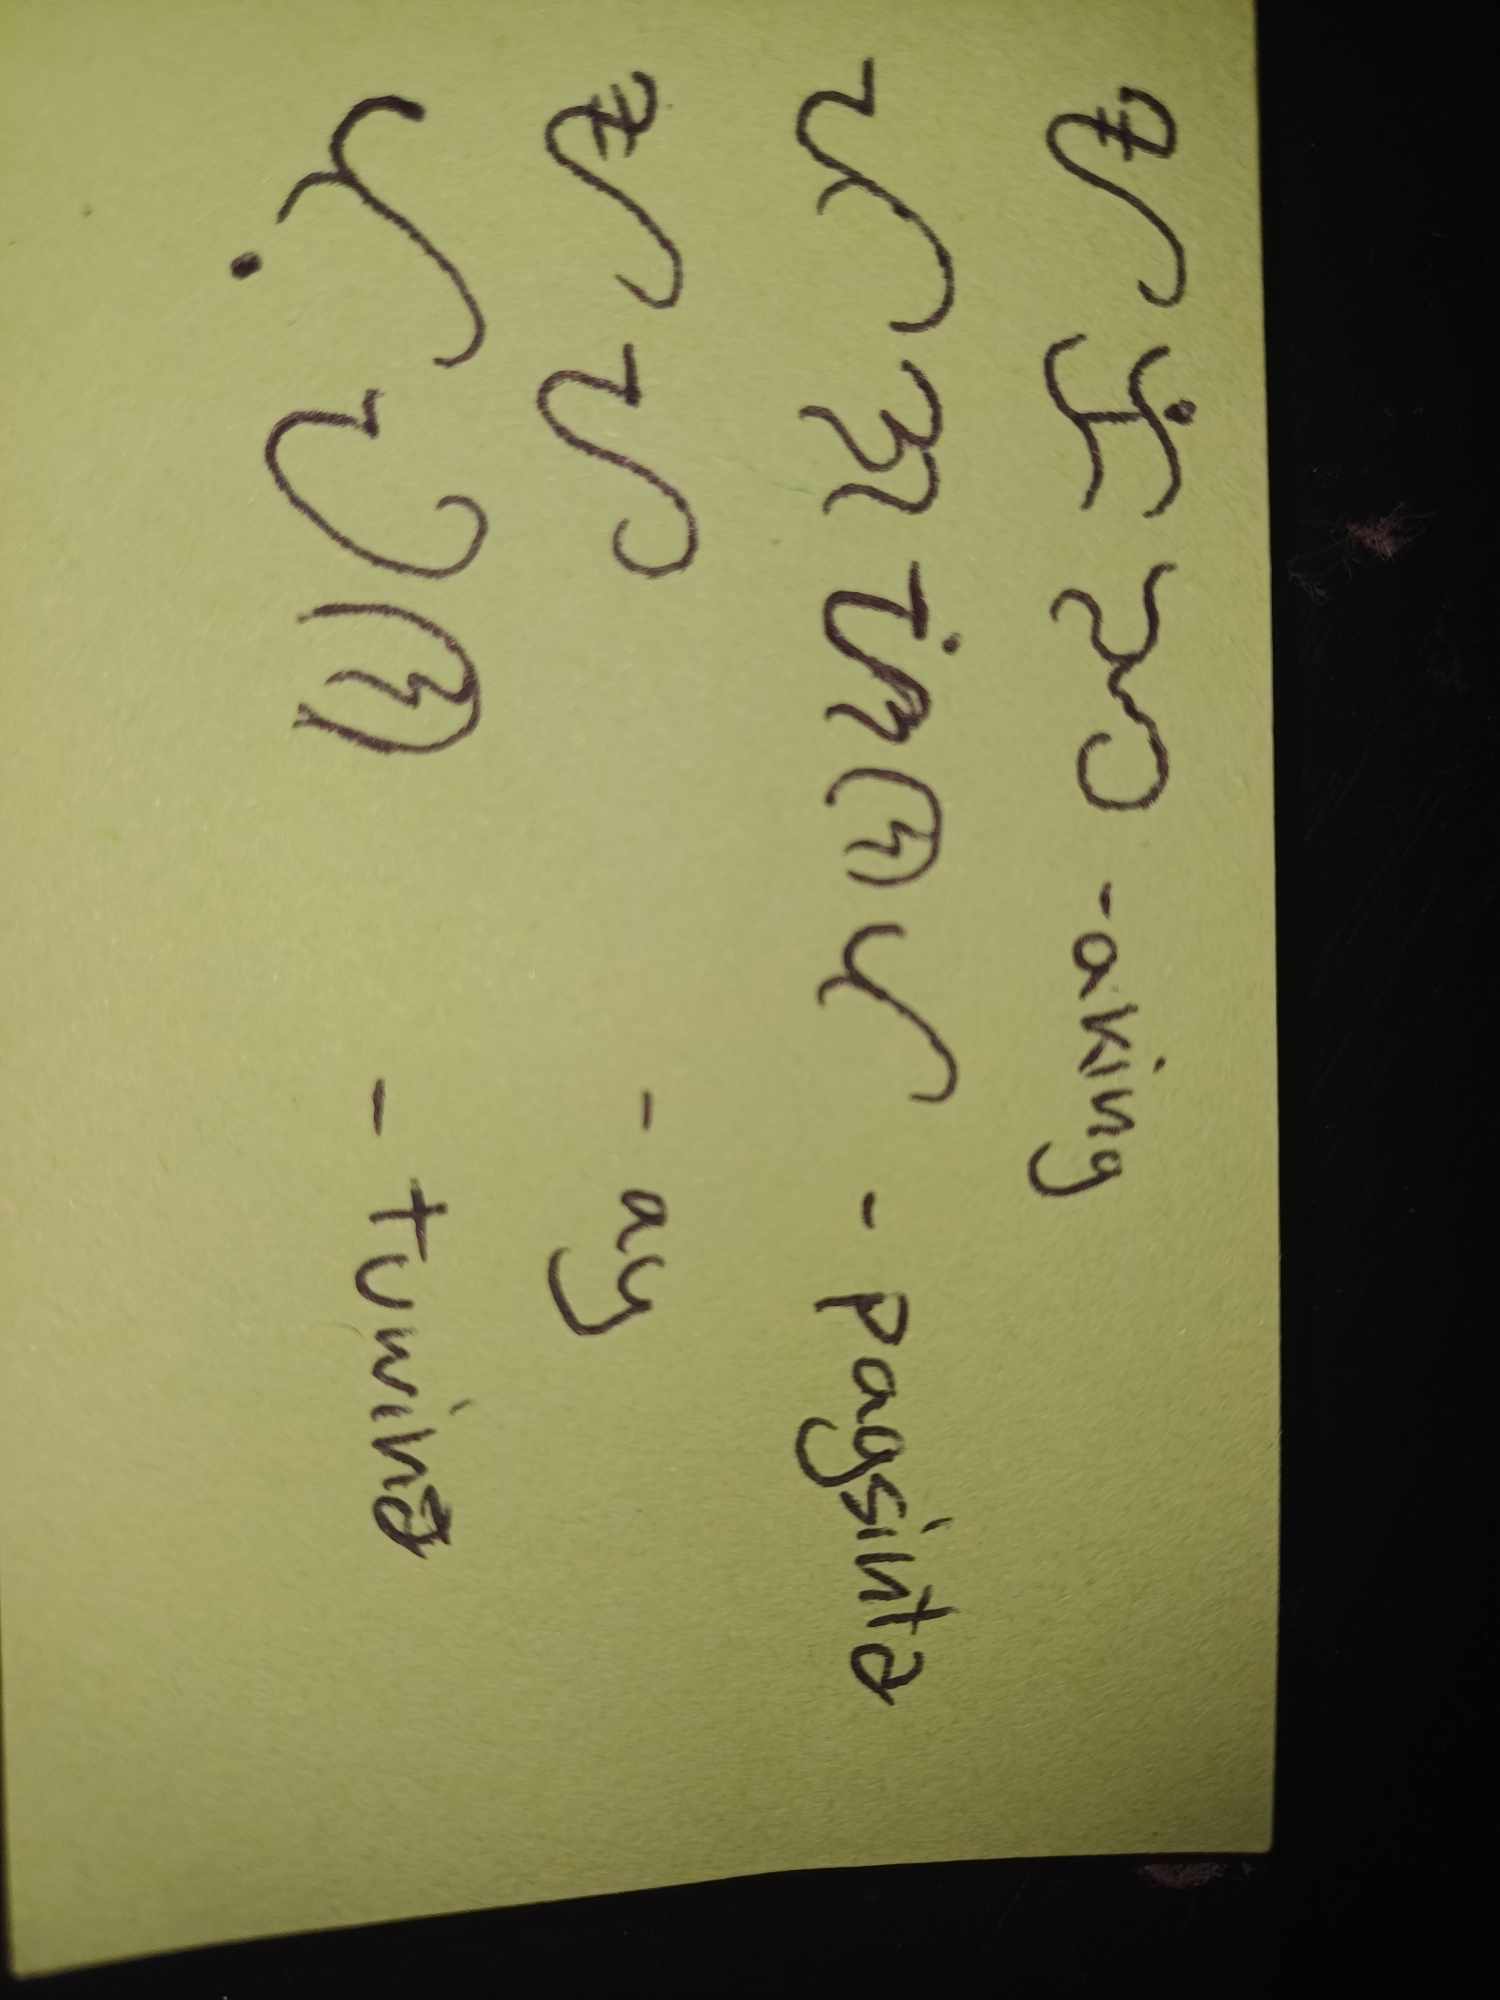 ᜀᜃᜒᜅ - aking
ᜉᜄᜐᜒᜈᜆ - pagsinta
ᜀᜌ - ay
ᜆᜓᜏᜈ - tuwina